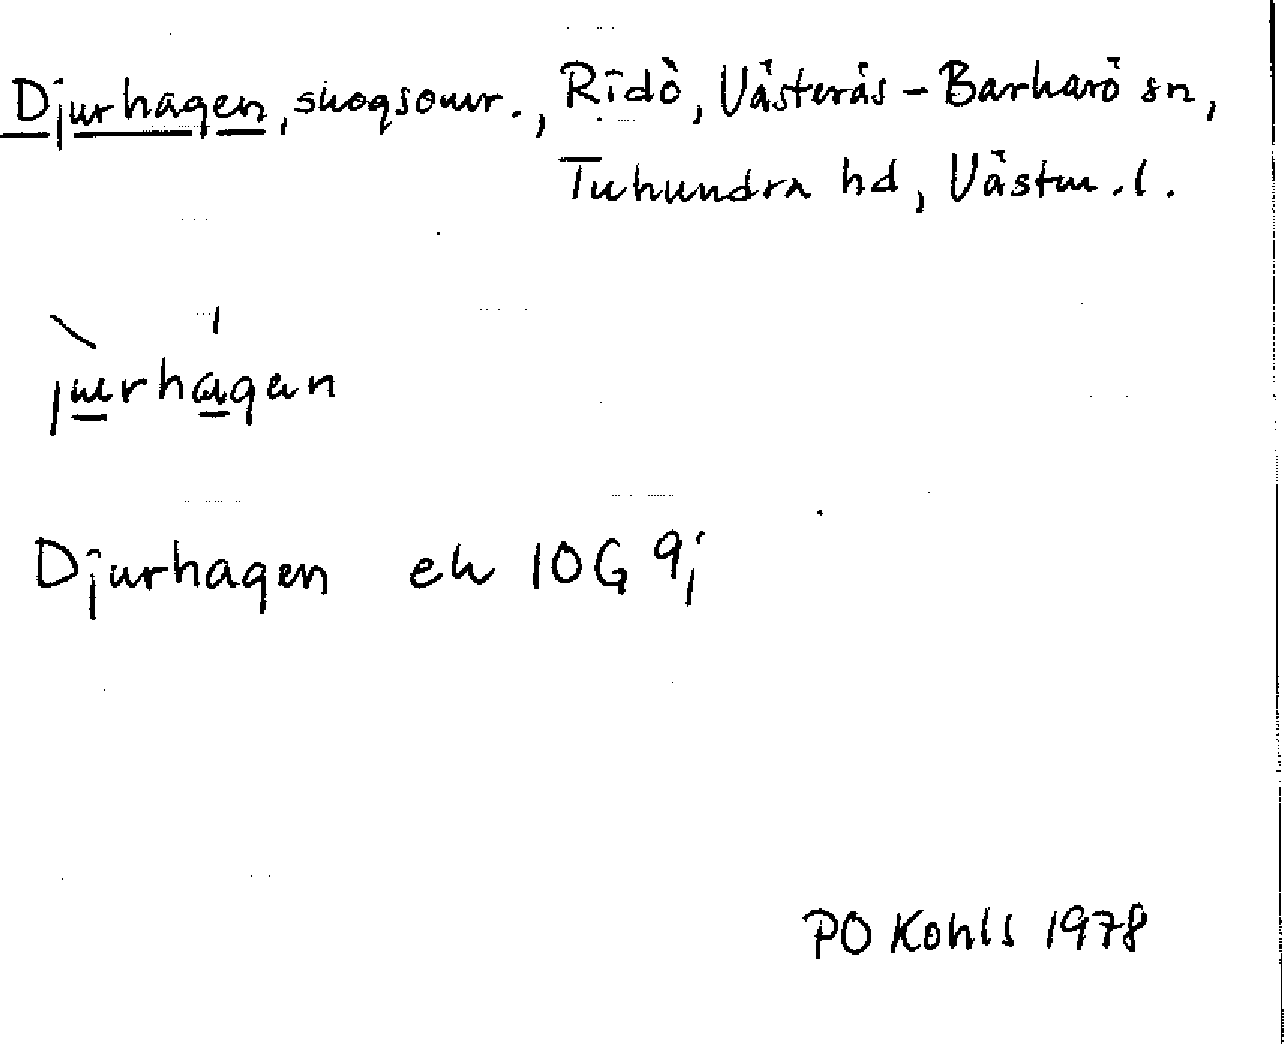 Djurhagen, skogsomr., Ridö, Västerås-Barkarö sn,
Tuhundra hd, Västm.l.
jurhagan
Djurhagen ek 10G 9j
PO Kohls 1978